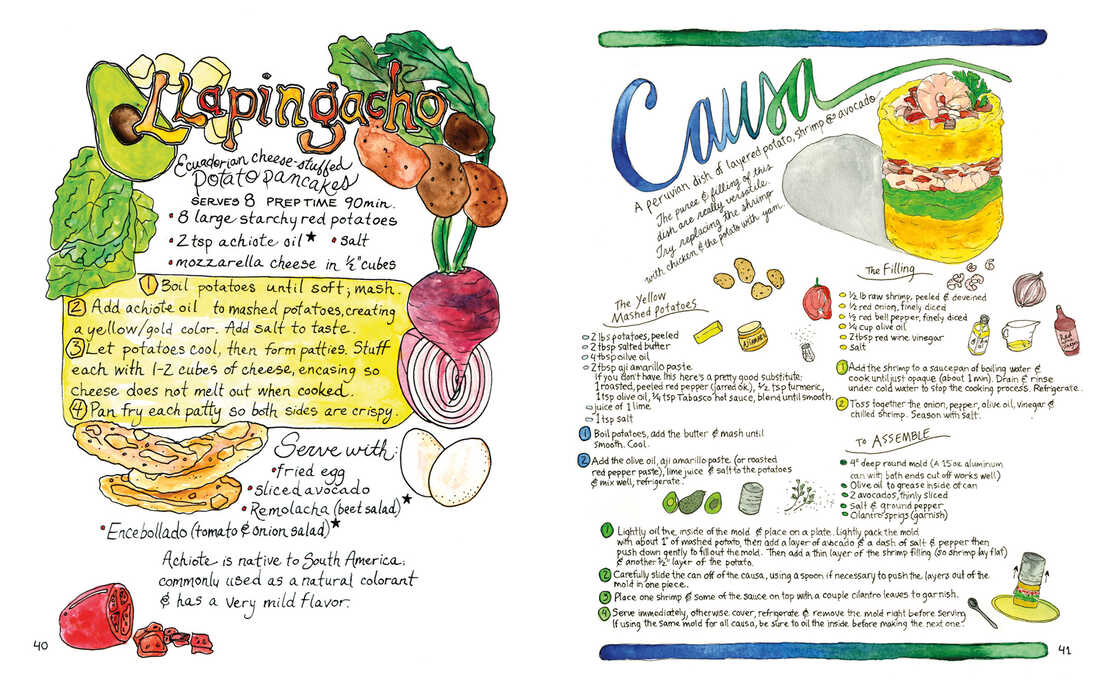 LLapingacho
Ecuadorian cheese-stuffed
Potato pancakes
SERVES 8 PREP TIME 90min.
• 8 large starchy red potatoes
• 2 tsp achiote oil★ • salt
• mozzarella cheese in ½" cubes
1 Boil potatoes until soft; mash.
2 Add achiote oil to mashed potatoes, creating
a yellow/gold color. Add salt to taste.
3 Let potatoes cool, then form patties. Stuff
each with 1-2 cubes of cheese, encasing so
cheese does not melt out when cooked.
4 Pan fry each patty so both sides are crispy.
Serve with:
• fried egg
• sliced avocado
• Remolacha (beet salad)★
• Encebollado (tomato & onion salad)★
Achiote is native to South America,
commonly used as a natural colorant
& has a very mild flavor.
40
Causa
A peruvian dish of layered potato, shrimp & avocado
The puree & filling of this
dish are really versatile.
Try replacing the shrimp
with chicken & the potato with yam.
The Yellow
Mashed Potatoes
2 lbs potatoes, peeled
2 tbsp salted butter
4 tbsp olive oil
2 tbsp aji amarillo paste
If you don't have this here's a pretty good substitute:
1 roasted, peeled red pepper (jarred ok), ½ tsp turmeric,
1 tsp olive oil, ¼ tsp Tabasco hot sauce, blend until smooth.
juice of 1 lime
1 tsp salt
1 Boil potatoes, add the butter & mash until
smooth. Cool.
2 Add the olive oil, aji amarillo paste (or roasted
red pepper paste), lime juice & salt to the potatoes
& mix well, refrigerate.
The Filling
½ lb raw shrimp, peeled & deveined
½ red onion, finely diced
½ red bell pepper, finely diced
¼ cup olive oil
2 tbsp red wine vinegar
Salt
1 Add the shrimp to a saucepan of boiling water &
cook until just opaque (about 1 min). Drain & rinse
under cold water to stop the cooking process. Refrigerate.
2 Toss together the onion, pepper, olive oil, vinegar &
chilled shrimp. Season with salt.
To ASSEMBLE
4" deep round mold (A 15 oz aluminum
can with both ends cut off works well)
Olive oil to grease inside of can
2 avocados, thinly sliced
Salt & ground pepper
Cilantro sprigs (garnish)
1 Lightly oil the inside of the mold & place on a plate. Lightly pack the mold
with about 1" of mashed potato, then add a layer of avocado & a dash of salt & pepper then
push down gently to fill out the mold. Then add a thin layer of the shrimp filling (so shrimp lay flat)
& another ½" layer of the potato.
2 Carefully slide the can off of the causa, using a spoon if necessary to push the layers out of the
mold in one piece.
3 Place one shrimp & some of the sauce on top with a couple cilantro leaves to garnish.
4 Serve immediately, otherwise cover, refrigerate & remove the mold right before serving
If using the same mold for all causa, be sure to oil the inside before making the next one.
41